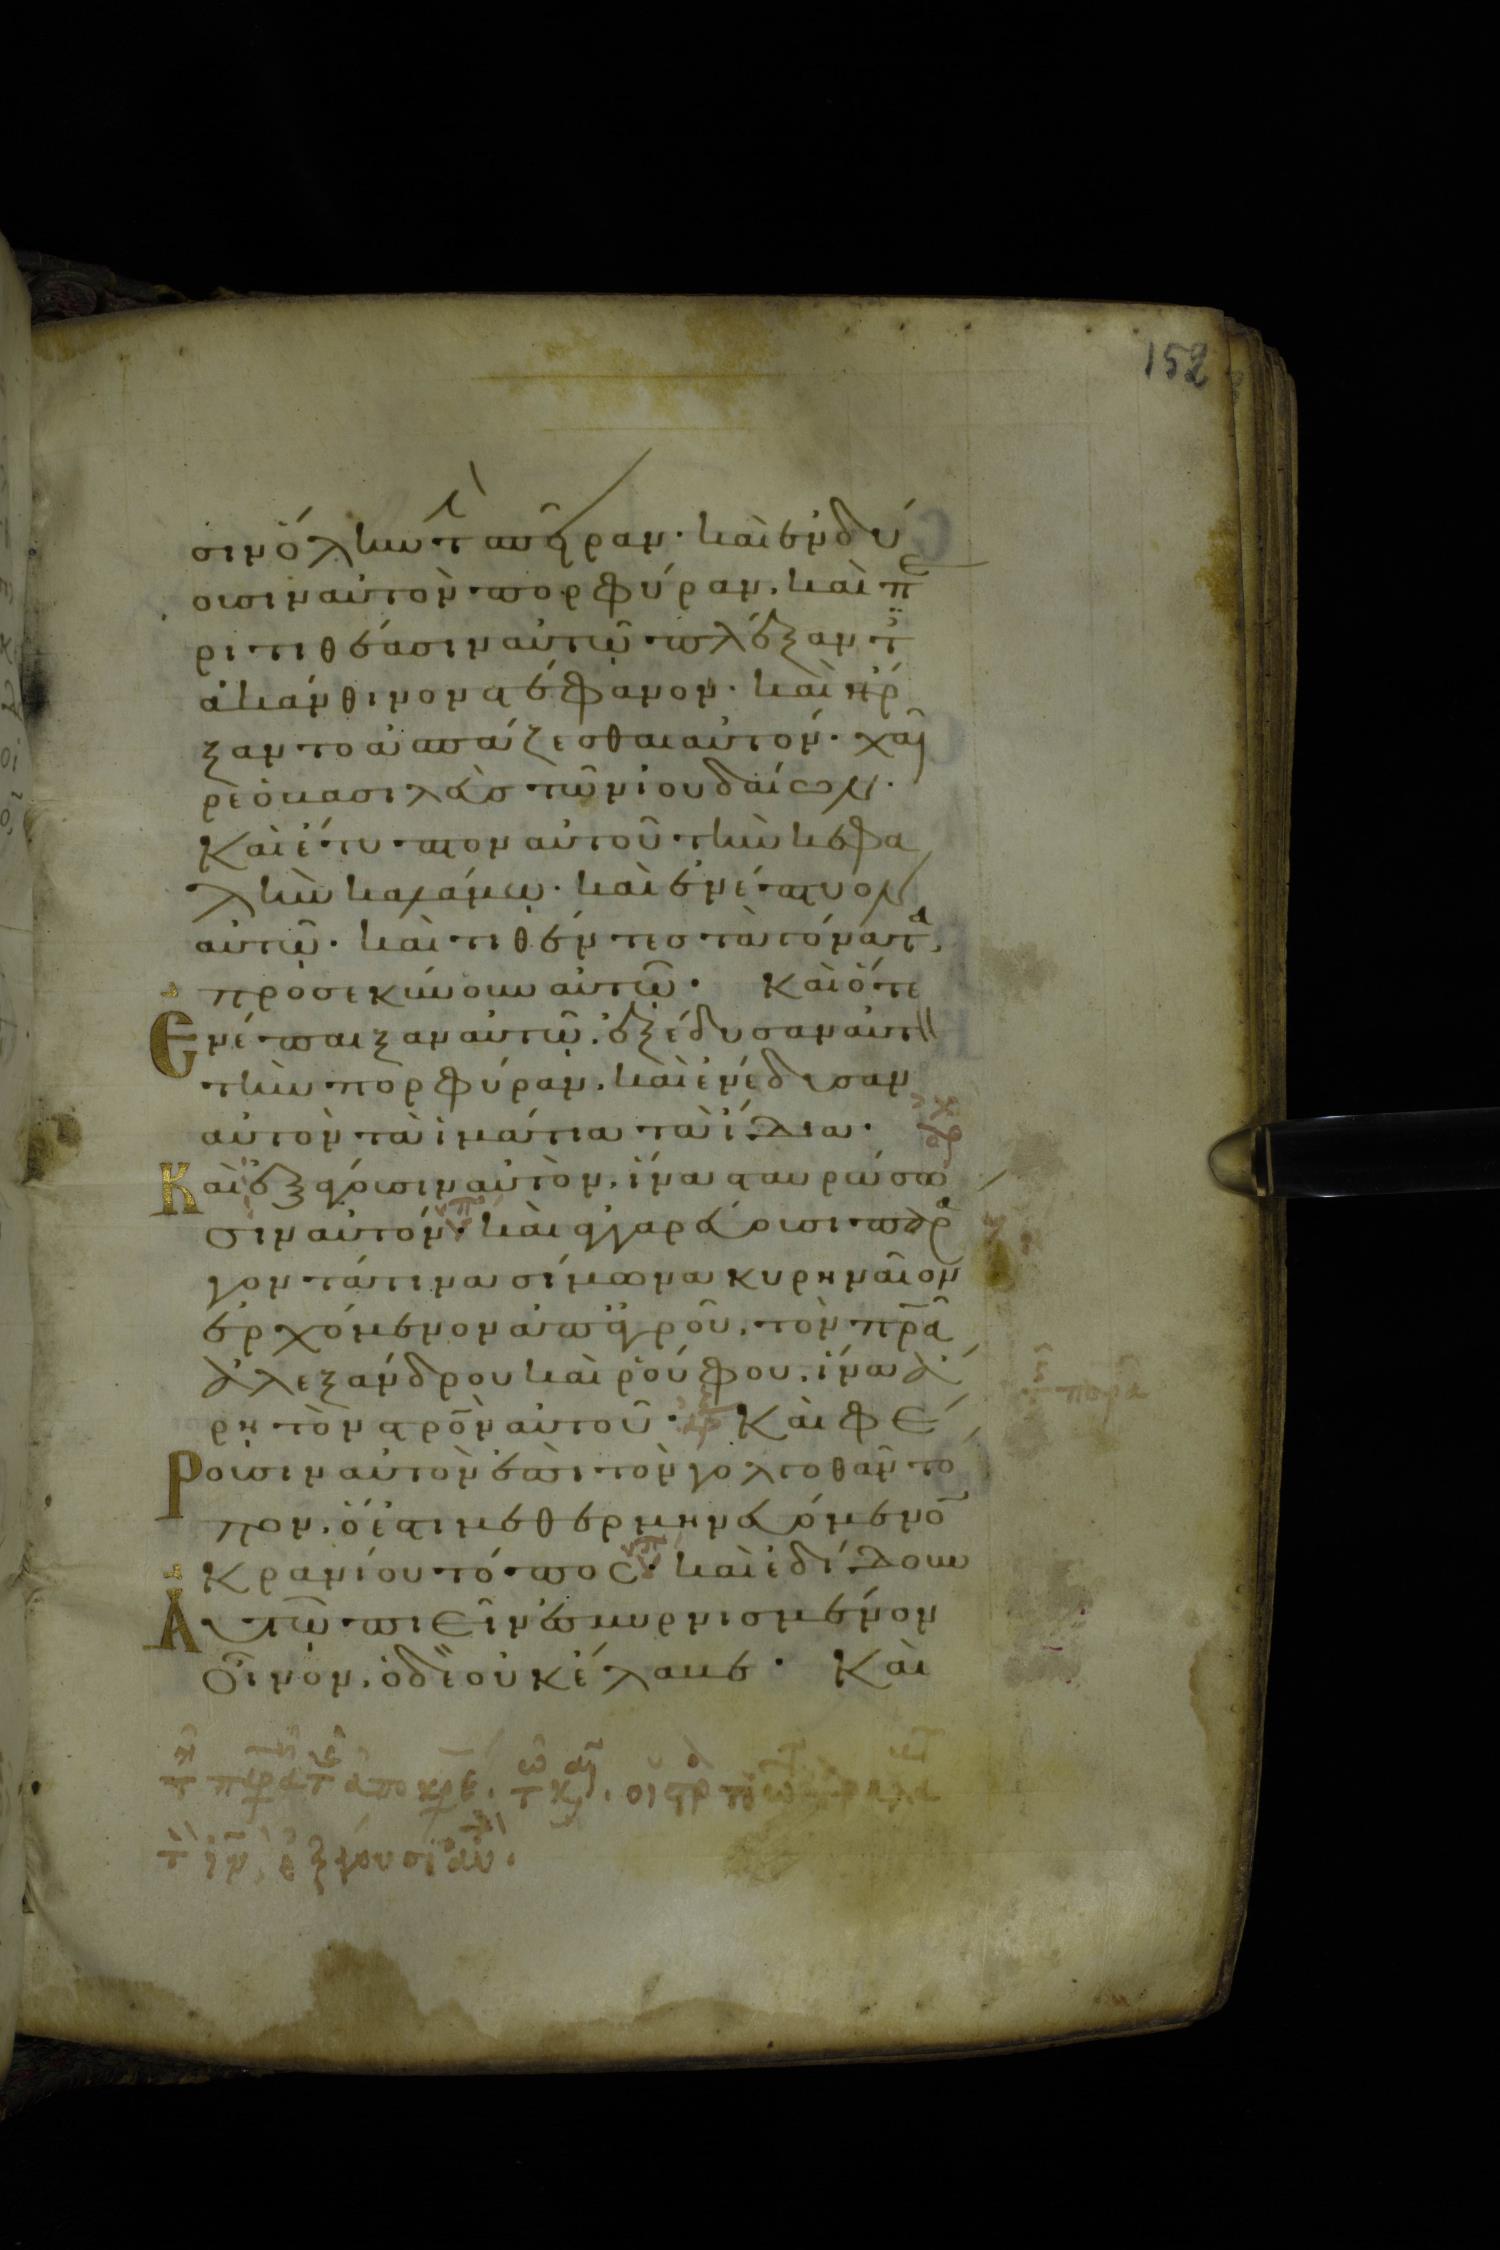 152
σιν ὅλην τ̀ σπεῖραν· καὶ ἐνδύ
ουσιν αὐτὸν πορφύραν, καὶ πε
ριτιθέασιν αὐτῶ πλέξαντ̈
ἀκάνθινον στέφανον· καὶ ἤρ
ξαντο ἀσπάζεσθαι αὐτόν· χαῖ
ρε ὁ βασιλεὺς τῶν ἰουδαίων·
Καὶ ἔτυπτον αὐτοῦ τὴν κεφα
λὴν καλάμω· καὶ ἐνέπτυον
αὐτῶ· καὶ τιθέντες τὰ γόνατα,
προσεκύνουν αὐτῶ· Καὶ ὅτε
Ἐνέπαιξαν αὐτῶ, ἐξέδυσαν αὐτ
τὴν πορφύραν, καὶ ἐνέδυσαν
αὐτὸν τὰ ἱμάτια τὰ ἴδια·
Καὶ ἐξάγουσιν αὐτὸν, ἵνα σταυρώσω
σιν αὐτόν· καὶ ἀγγαρεύουσι παρά
γοντά τινα σίμωνα κυρηναῖον
ἐρχόμενον ἀπ' ἀγροῦ, τὸν πρ̅α
ἀλεξάνδρου καὶ ῥούφου, ἵνα ἄ
ρη τὸν στρο̅ν αὐτοῦ· Καὶ φέ
Ρουσιν αὐτὸν ἐπὶ τὸν γολγοθᾶν το
πον, ὅ ἐστι μεθερμηνευόμενο̅
Κρανίου τόπος· καὶ ἐδίδουν
Αὐτῶ πιεῖν ἐσμυρνισμένον
Οἶνον, ὁ δὲ οὐκ ἔλαβε· Καὶ